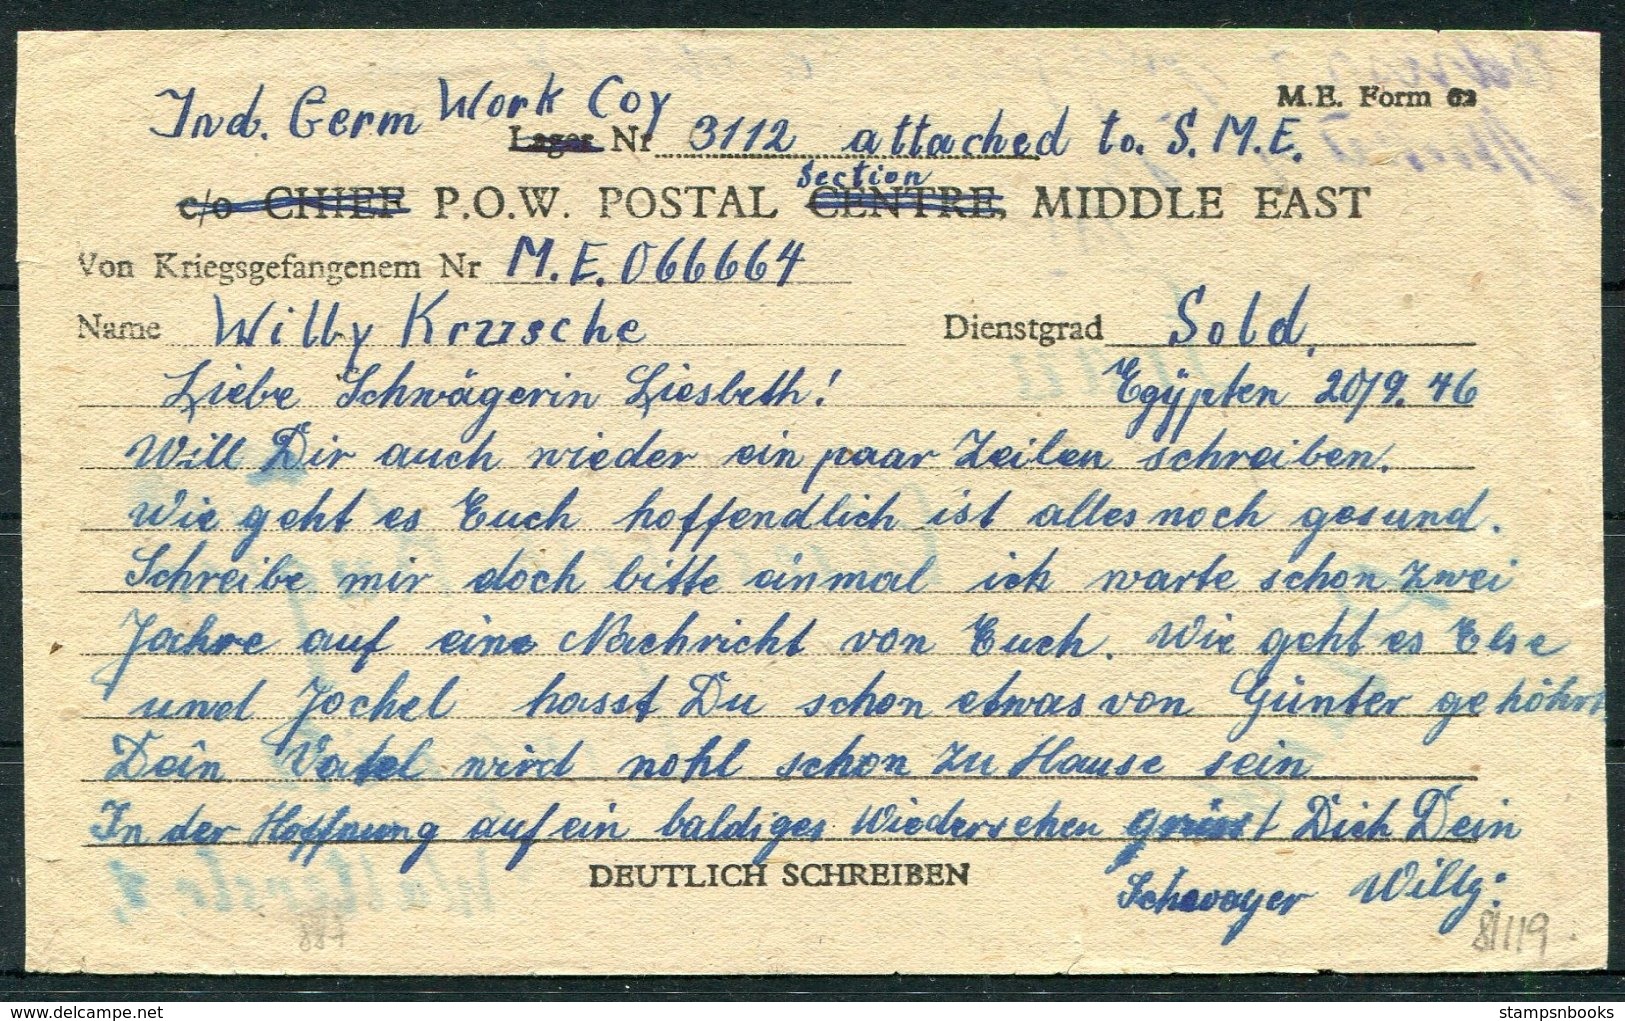 M.E. Form 62
Ind. Germ Work Coy
Lager Nr 3112 attached to. S.M.E.
Section
c/o CHIEF P.O.W. POSTAL CENTRE, MIDDLE EAST
Von Kriegsgefangenem Nr M.E. 066664
Name Willy Krusche Dienstgrad Sold.
Liebe Schwägerin Liesbeth! Egÿpten 20/9.46
Will Dir auch wieder ein paar Zeilen schreiben.
Wie geht es Euch hoffendlich ist alles noch gesund.
Schreibe mir doch bitte einmal ich warte schon zwei
Jahre auf eine Nachricht von Euch. Wie geht es Else
und Jochel hasst Du schon etwas von Günter gehöhrt
Dein Vatel wird wohl schon zu Hause sein
In der Hoffnung auf ein baldiges Wiedersehen grüst Dich Dein
DEUTLICH SCHREIBEN
Schwager Willy:
887
8/119
stampsnbooks